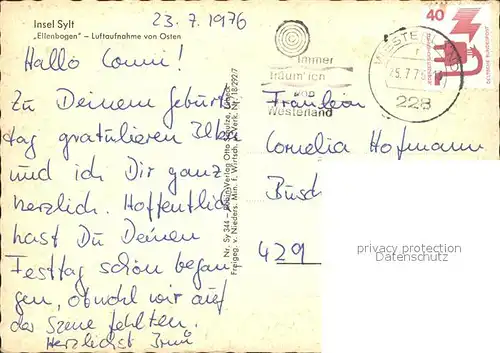 Insel Sylt
„Ellenbogen" – Luftaufnahme von Osten
23.7.1976
Hallo Conni!
Zu Deinem Geburts
tag gratulieren
und ich Dir ganz
herzlich. Hoffentlich
hast Du Deinen
Festtag schön began-
gen, obwohl wir auf
der Szene fehlten.
Herzlichst
Nr. Sy 344 –
Freigeg. v. Nieders. Min. f. Wirtsch. u. Verk. Nr. 18/222/7
immer
träum' ich
von
Westerland
WESTERLAND
228
40
DEUTSCHE BUNDESPOST
Fräulein
Cornelia Hofmann
Busch
429
privacy protection
Datenschutz